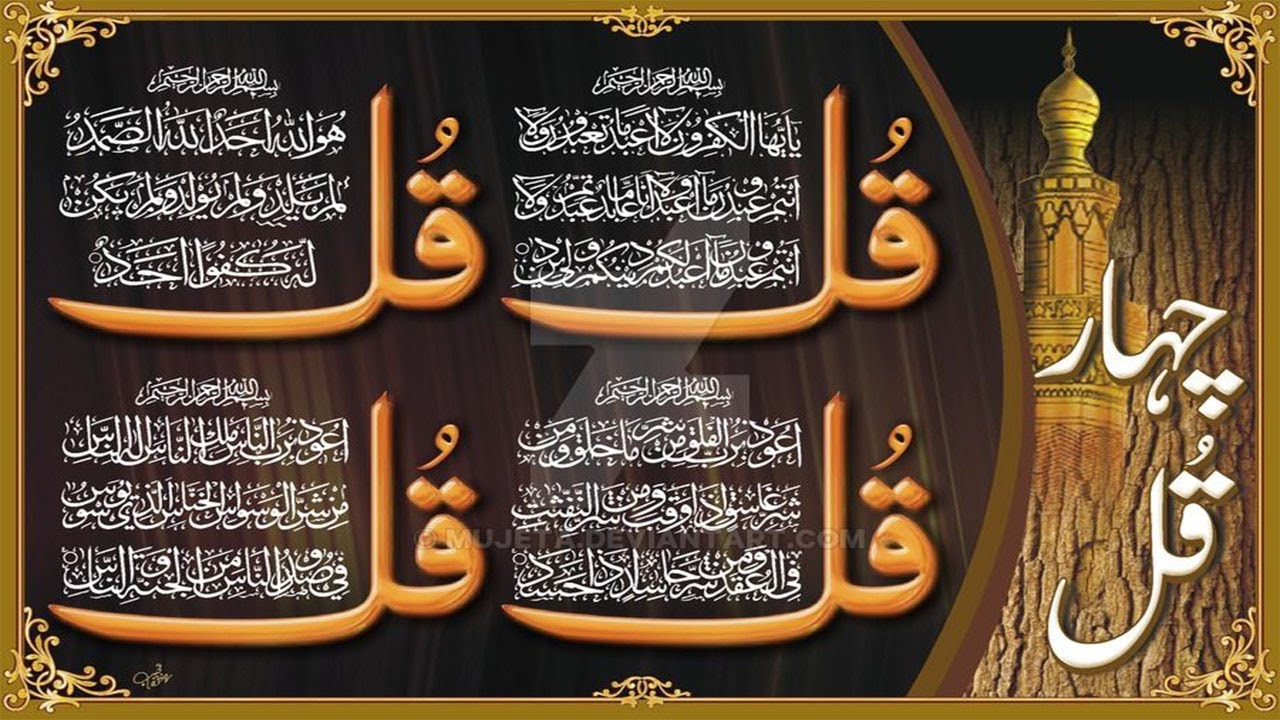 چہار
قُل
بسم الله الرحمن الرحيم
قُل
يايها الكفرون لا اعبد ما تعبدون ولا
انتم عبدون ما اعبد ولا انا عابد ما عبدتم ولا
انتم عبدون ما اعبد لكم دينكم ولي دين
بسم الله الرحمن الرحيم
قُل
هو الله احد الله الصمد
لم يلد ولم يولد ولم يكن
له كفوا احد
بسم الله الرحمن الرحيم
قُل
اعوذ برب الفلق من شر ما خلق ومن
شر غاسق اذا وقب ومن شر النفثت
في العقد ومن شر حاسد اذا حسد
بسم الله الرحمن الرحيم
قُل
اعوذ برب الناس ملك الناس اله الناس
من شر الوسواس الخناس الذي يوسوس
في صدور الناس من الجنة والناس
© MUJETA.DEVIANTART.COM